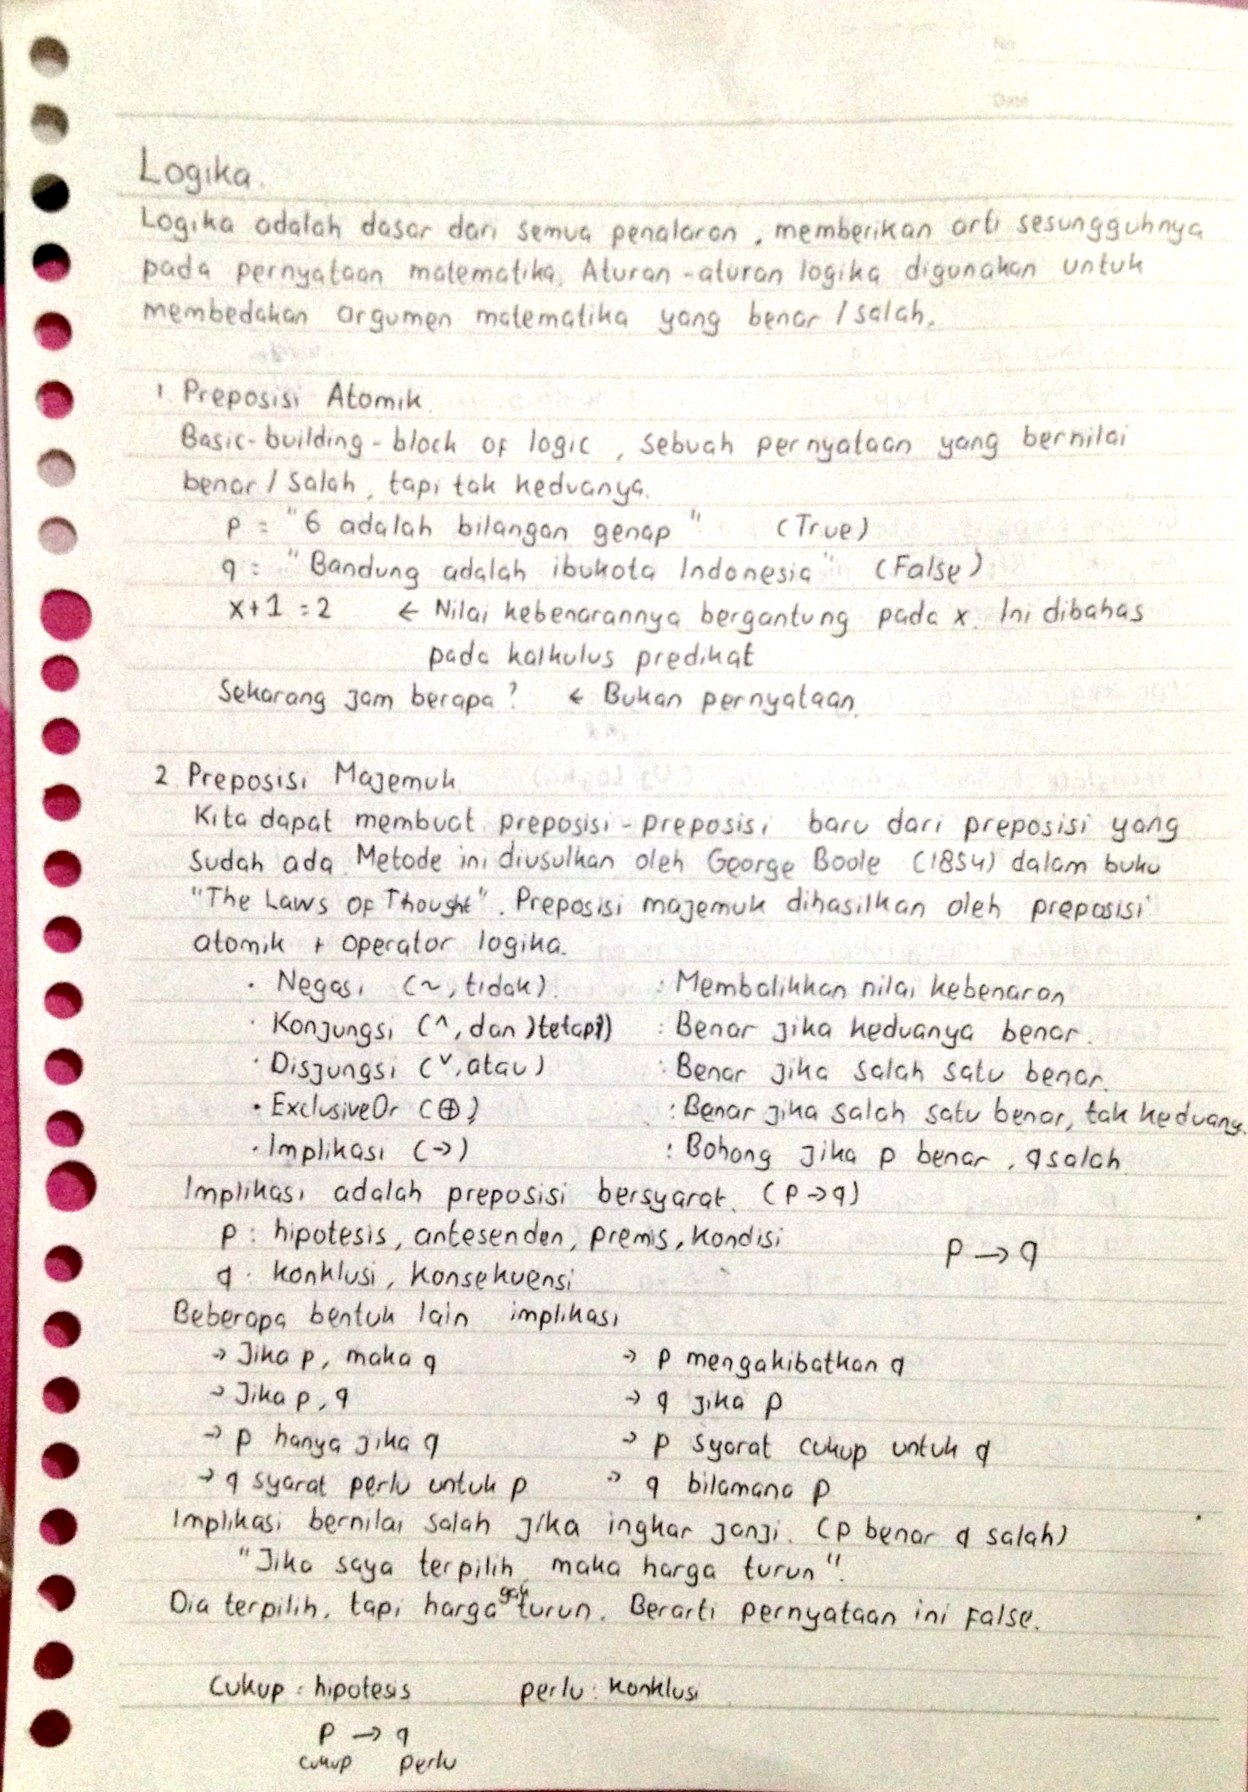 No
Date
Logika.
Logika adalah dasar dari semua penalaran, memberikan arti sesungguhnya
pada pernyataan matematika. Aturan-aturan logika digunakan untuk
membedakan argumen matematika yang benar / salah.
1 Preposisi Atomik.
Basic-building-block of logic, sebuah pernyataan yang bernilai
benar / salah, tapi tak keduanya.
p = "6 adalah bilangan genap" (True)
q : "Bandung adalah ibukota Indonesia" (False)
x+1 = 2 ← Nilai kebenarannya bergantung pada x. Ini dibahas
pada kalkulus predikat
Sekarang jam berapa? ← Bukan pernyataan.
2 Preposisi Majemuk
Kita dapat membuat preposisi-preposisi baru dari preposisi yang
sudah ada. Metode ini diusulkan oleh George Boole (1854) dalam buku
"The Laws of Thought". Preposisi majemuk dihasilkan oleh preposisi
atomik + operator logika.
· Negasi (~, tidak). : Membalikkan nilai kebenaran
· Konjungsi (^, dan)tetapi) : Benar jika keduanya benar.
· Disjungsi (v, atau) : Benar jika salah satu benar.
· ExclusiveOr (⊕) : Benar jika salah satu benar, tak keduanya.
· Implikasi (→) : Bohong jika p benar, q salah.
Implikasi adalah preposisi bersyarat. (p→q)
p : hipotesis, antesenden, premis, kondisi
p → q
q : konklusi, konsekuensi
Beberapa bentuk lain implikasi
→ Jika p, maka q → p mengakibatkan q
→ Jika p, q → q jika p
→ p hanya jika q → p syarat cukup untuk q
→ q syarat perlu untuk p → q bilamana p
Implikasi bernilai salah jika ingkar janji. (p benar q salah)
"Jika saya terpilih, maka harga turun".
Dia terpilih, tapi harga gak turun. Berarti pernyataan ini False.
Cukup : hipotesis perlu : konklusi
p → q
cukup perlu